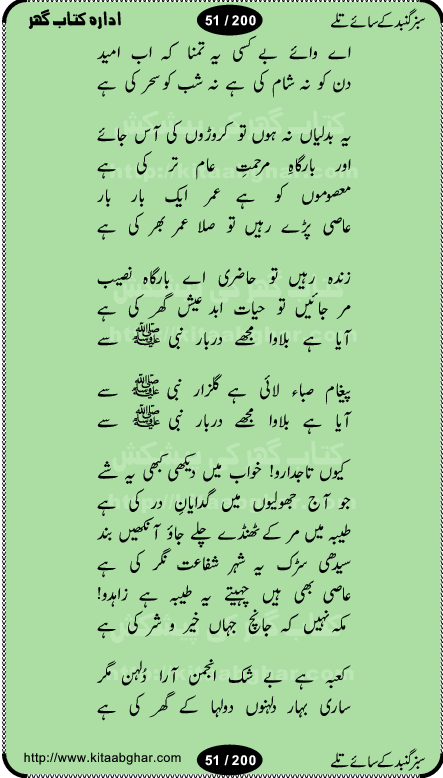 سبز گنبد کے سائے تلے 51 / 200 ادارہ کتاب گھر
اے وائے بے کسی یہ تمنا کہ اب امید
دن کو نہ شام کی ہے نہ شب کو سحر کی ہے
یہ بدلیاں نہ ہوں تو کروڑوں کی آس جائے
اور بارگاہِ مرحمتِ عام تر کی ہے
معصوموں کو ہے عمر ایک بار بار
عاصی پڑے رہیں تو صلا عمر بھر کی ہے
زندہ رہیں تو حاضری اے بارگاہ نصیب
مر جائیں تو حیات ابد عیش گھر کی ہے
آیا ہے بلاوا مجھے دربار نبی ﷺ سے
پیغام صباء لائی ہے گلزار نبی ﷺ سے
آیا ہے بلاوا مجھے دربار نبی ﷺ سے
کیوں تاجدارو! خواب میں دیکھی کبھی یہ شے
جو آج جھولیوں میں گدایانِ در کی ہے
طیبہ میں مر کے ٹھنڈے چلے جاؤ آنکھیں بند
سیدھی سڑک یہ شہر شفاعت نگر کی ہے
عاصی بھی ہیں چہیتے یہ طیبہ ہے زاہدو!
مکہ نہیں کہ جانچ جہاں خیر و شر کی ہے
کعبہ ہے بے شک انجمن آرا دُلہن مگر
ساری بہار دلہنوں دولہا کے گھر کی ہے
سبز گنبد کے سائے تلے 51 / 200 http://www.kitaabghar.com
کتاب گھر کی پیشکش
http://kitaabghar.com
کتاب گھر کی پیشکش
http://kitaabghar.com
کتاب گھر کی پیشکش
http://kitaabghar.com
کتاب گھر کی پیشکش
http://kitaabghar.com